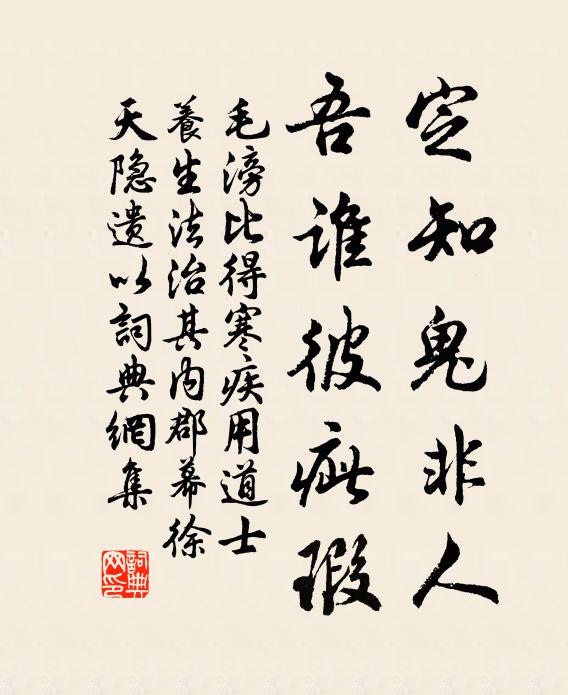 定知鬼非人
吾谁彼疵瑕
毛滂比得寒疾用道士
养生法治其内郡幕徐
天隐遗以詞典網集
詞典网印